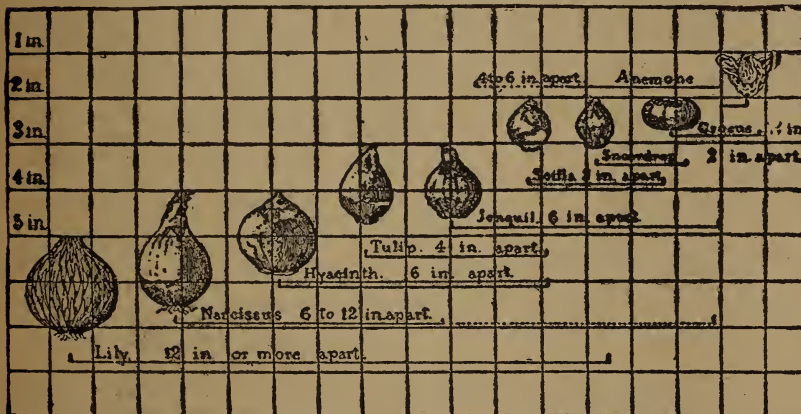 1 in.
2 in.
4 to 6 in. apart Anemone
3 in.
Crocus, in
Snowdrop 2 in. apart.
4 in.
Scilla 2 in. apart
5 in.
Jonquil. 6 in. apart.
Tulip. 4 in. apart.
Hyacinth. 6 in. apart.
Narcissus 6 to 12 in. apart.
Lily, 12 in or more apart.